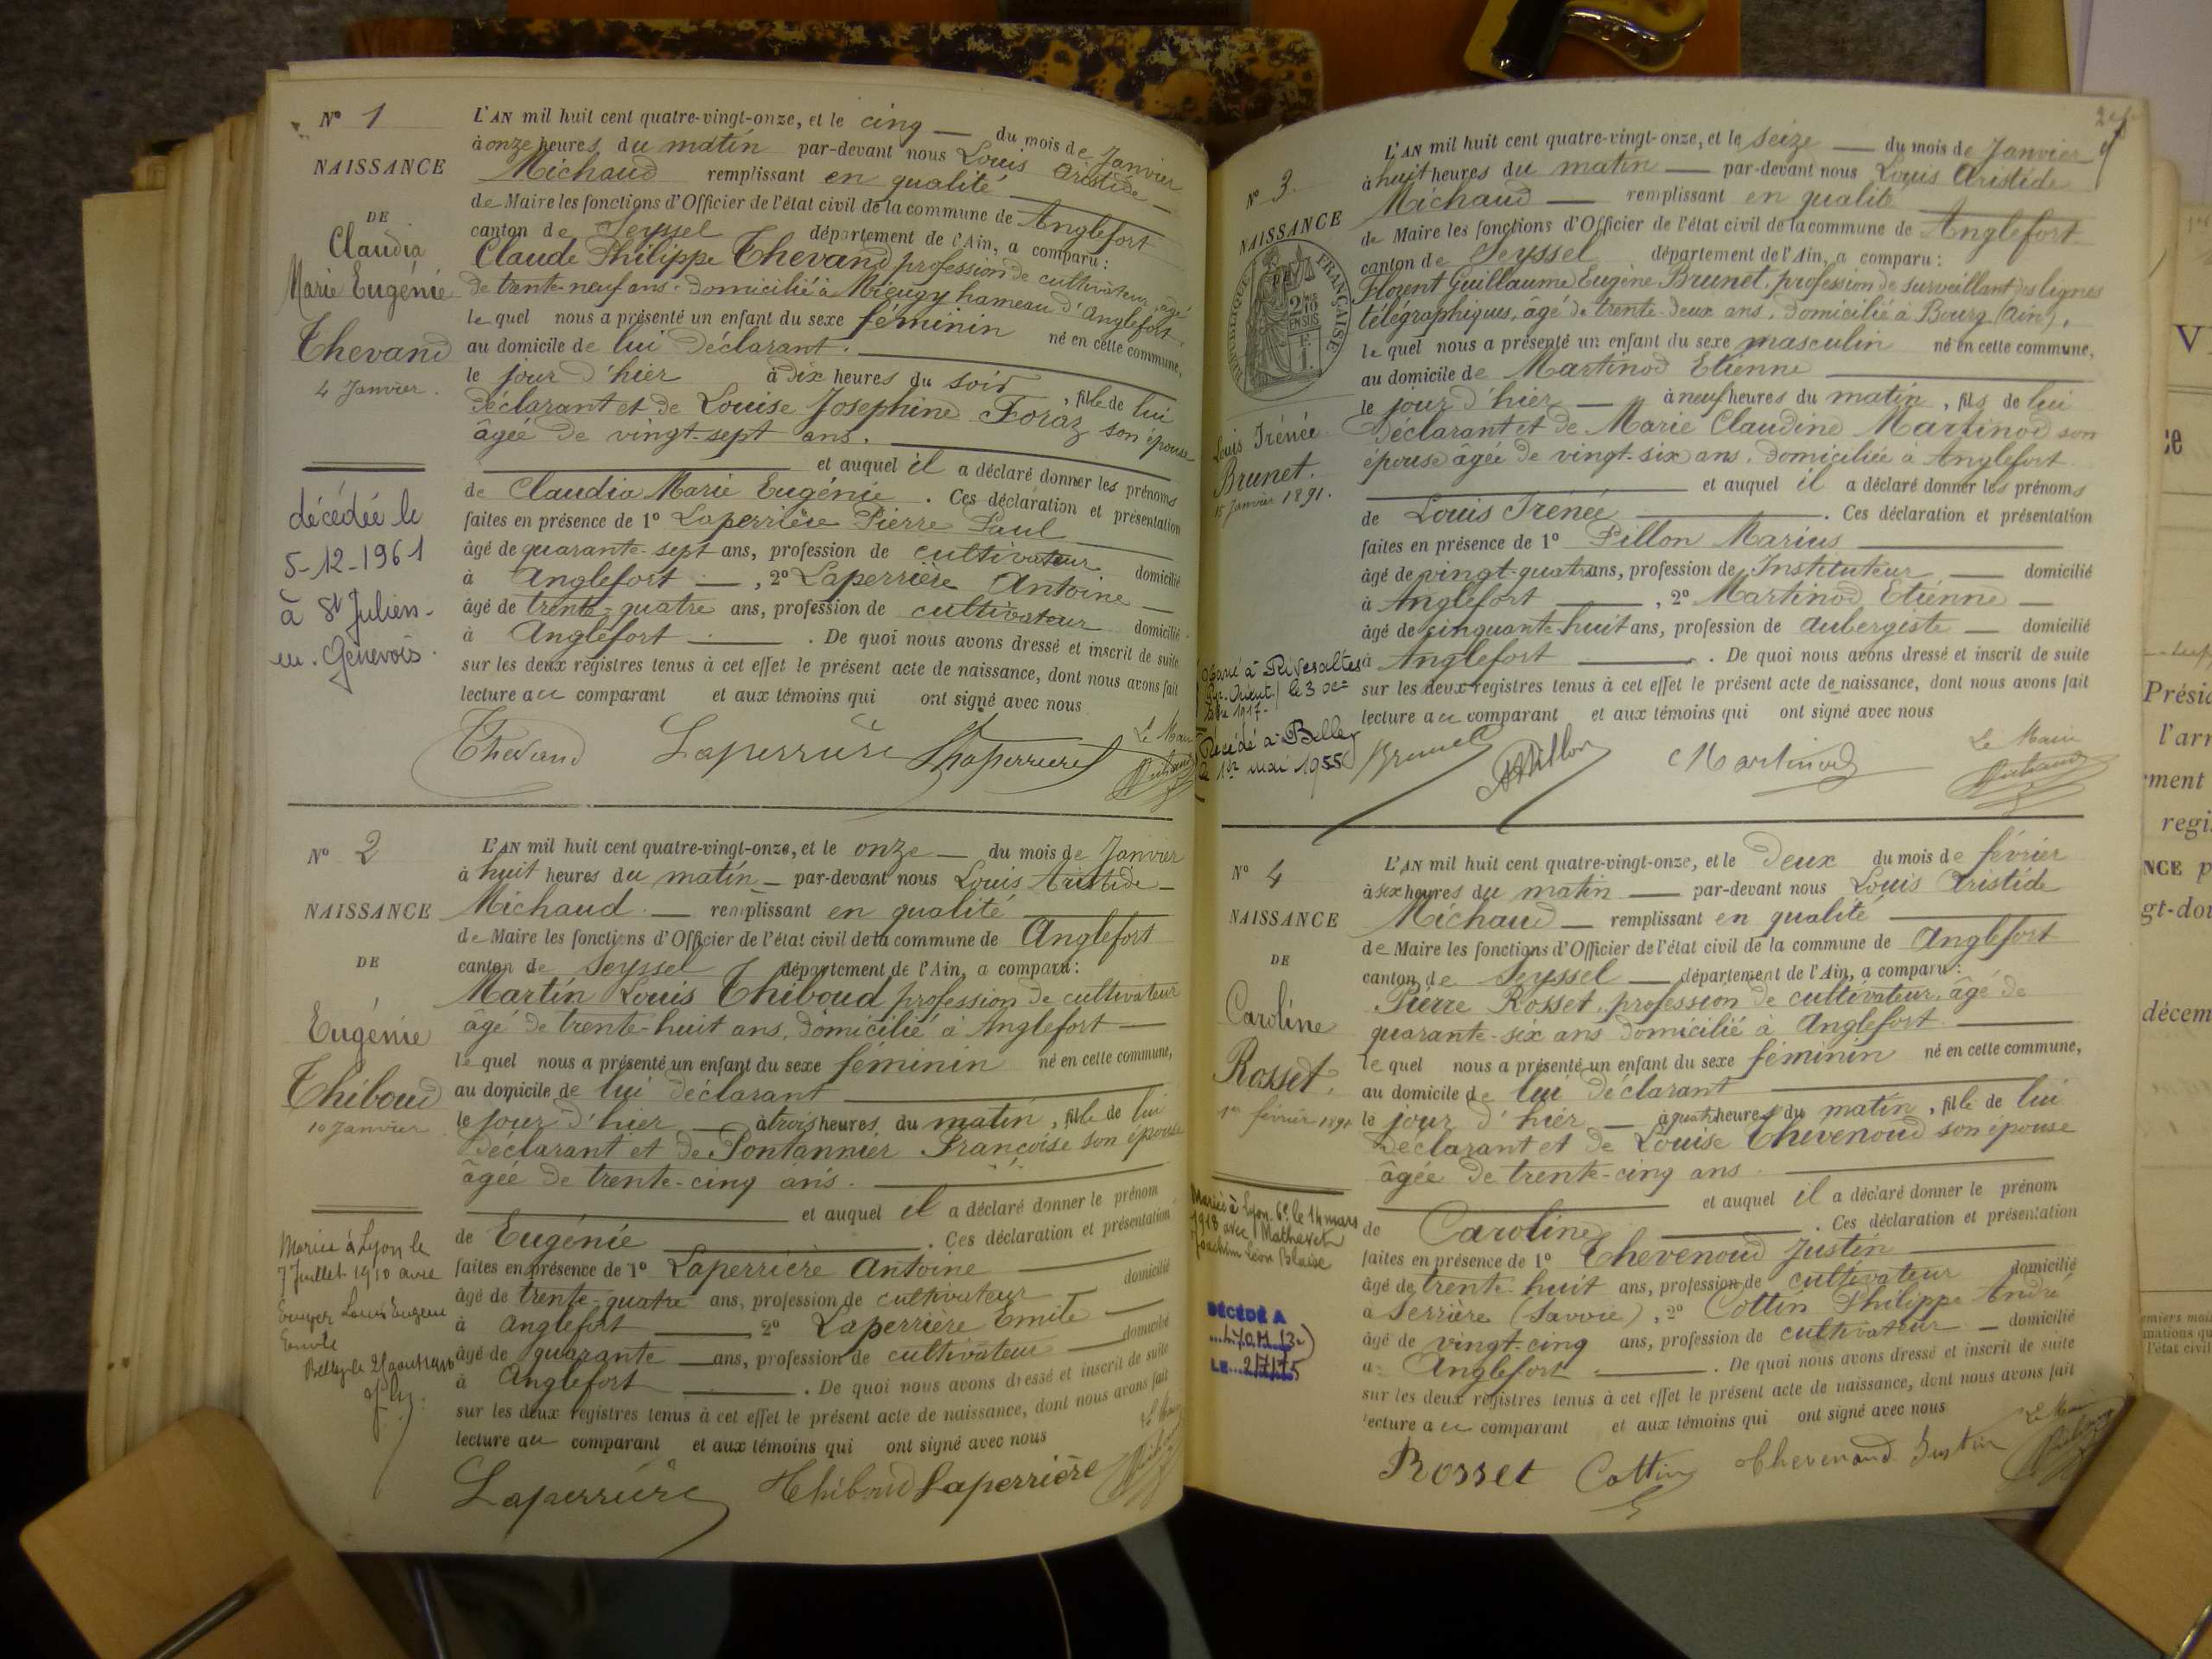 Nº 1
NAISSANCE
DE
Claudia
Marie Eugénie
Thevand
4 Janvier.
décédée le
5-12-1961
à St Julien-
en-Genevois.
L'AN mil huit cent quatre-vingt-onze, et le cinq — du mois de Janvier
à onze heures du matin par-devant nous Louis Aristide
Michaud remplissant en qualité
de Maire les fonctions d'Officier de l'état civil de la commune de Anglefort
canton de Seyssel département de l'Ain, a comparu :
Claude Philippe Thevand profession de cultivateur, âgé
de trente-neuf ans. domicilié à Mieugy hameau d'Anglefort.
le quel nous a présenté un enfant du sexe féminin né en cette commune,
au domicile de lui déclarant.
le jour d'hier à dix heures du soir, fille de lui
déclarant et de Louise Josephine Foraz son épouse
âgée de vingt-sept ans.
et auquel il a déclaré donner les prénoms
de Claudia Marie Eugénie. Ces déclaration et présentation
faites en présence de 1º Laperrière Pierre Paul
âgé de quarante-sept ans, profession de cultivateur domicilié
à Anglefort —, 2º Laperrière Antoine —
âgé de trente-quatre ans, profession de cultivateur domicilié
à Anglefort —. De quoi nous avons dressé et inscrit de suite
sur les deux registres tenus à cet effet le présent acte de naissance, dont nous avons fait
lecture au comparant et aux témoins qui ont signé avec nous
Thevand Laperrière Laperrière Le Maire
Michaud
Nº 2
NAISSANCE
DE
Eugénie
Thiboud
10 Janvier
Mariée à Lyon le
7 Juillet 1910 avec
Louis Eugène
Emile
Belley le 25 août 1910
L'AN mil huit cent quatre-vingt-onze, et le onze — du mois de Janvier
à huit heures du matin — par-devant nous Louis Aristide —
Michaud — remplissant en qualité
de Maire les fonctions d'Officier de l'état civil de la commune de Anglefort
canton de Seyssel département de l'Ain, a comparu :
Martin Louis Thiboud profession de cultivateur
âgé de trente-huit ans, domicilié à Anglefort —
le quel nous a présenté un enfant du sexe féminin né en cette commune,
au domicile de lui déclarant
le jour d'hier — à trois heures du matin, fille de lui
déclarant et de Pontannier Françoise son épouse
âgée de trente-cinq ans.
et auquel il a déclaré donner le prénom
de Eugénie. Ces déclaration et présentation
faites en présence de 1º Laperrière Antoine
âgé de trente-quatre ans, profession de cultivateur domicilié
à Anglefort — 2º Laperrière Emile —
âgé de quarante — ans, profession de cultivateur — domicilié
à Anglefort —. De quoi nous avons dressé et inscrit de suite
sur les deux registres tenus à cet effet le présent acte de naissance, dont nous avons fait
lecture au comparant et aux témoins qui ont signé avec nous
Laperrière Thiboud Laperrière Le Maire
Nº 3.
NAISSANCE
RÉPUBLIQUE FRANÇAISE
2/10
EN SUS
Louis Irénée
Brunet.
15 Janvier 1891.
Marié à Rivesaltes
le 3
1917.
Décédé à Belley
le 1er mai 1955
L'AN mil huit cent quatre-vingt-onze, et le seize — du mois de Janvier
à huit heures du matin — par-devant nous Louis Aristide
Michaud — remplissant en qualité
de Maire les fonctions d'Officier de l'état civil de la commune de Anglefort
canton de Seyssel département de l'Ain, a comparu :
Florent Guillaume Eugène Brunet, profession de surveillant des lignes
télégraphiques, âgé de trente-deux ans, domicilié à Bourg (Ain),
le quel nous a présenté un enfant du sexe masculin né en cette commune,
au domicile de Martinod Etienne
le jour d'hier — à neuf heures du matin, fils de lui
déclarant et de Marie Claudine Martinod son
épouse âgée de vingt-six ans, domiciliée à Anglefort
et auquel il a déclaré donner les prénoms
de Louis Irénée. Ces déclaration et présentation
faites en présence de 1º Pillon Marius
âgé de vingt-quatre ans, profession de Instituteur — domicilié
à Anglefort —, 2º Martinod Etienne —
âgé de cinquante-huit ans, profession de Aubergiste — domicilié
à Anglefort —. De quoi nous avons dressé et inscrit de suite
sur les deux registres tenus à cet effet le présent acte de naissance, dont nous avons fait
lecture au comparant et aux témoins qui ont signé avec nous
Brunet Pillon Martinod Le Maire
Michaud
Nº 4
NAISSANCE
DE
Caroline
Rosset,
1er février 1891
Mariée à Lyon 6e le 14 mars
1918 avec Mathevet
Joachim Léon Blaise
DÉCÉDÉ A
LYON (3e)
LE 2/7/75
L'AN mil huit cent quatre-vingt-onze, et le deux du mois de février
à six heures du matin — par-devant nous Louis Aristide
Michaud — remplissant en qualité
de Maire les fonctions d'Officier de l'état civil de la commune de Anglefort
canton de Seyssel — département de l'Ain, a comparu :
Pierre Rosset, profession de cultivateur, âgé de
quarante-six ans domicilié à Anglefort
le quel nous a présenté un enfant du sexe féminin né en cette commune,
au domicile de lui déclarant
le jour d'hier — à quatre heures du matin, fille de lui
déclarant et de Louise Thevenoud son épouse
âgée de trente-cinq ans.
et auquel il a déclaré donner le prénom
de Caroline. Ces déclaration et présentation
faites en présence de 1º Thevenoud Justin
âgé de trente-huit ans, profession de cultivateur domicilié
à Serrière (Savoie), 2º Cottin Philippe André
âgé de vingt-cinq ans, profession de cultivateur — domicilié
à Anglefort —. De quoi nous avons dressé et inscrit de suite
sur les deux registres tenus à cet effet le présent acte de naissance, dont nous avons fait
lecture au comparant et aux témoins qui ont signé avec nous
Rosset Cottin Thevenoud Justin Le Maire